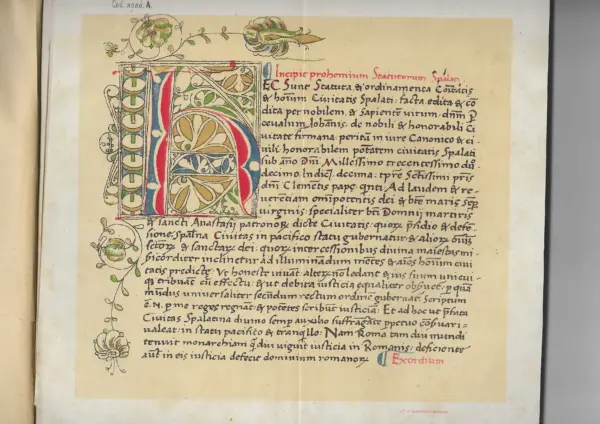 Cod. acad. A.
Incipit prohemium Statutorum Spalati.
EC Sunt Statuta & ordinamenta Cōitatis
& hoīum Ciuitatis Spalati: facta edita & cō
dita per nobilem & sapientē uirum dnm P
ceualum Iohānis de nobili & honorabili Ci
uitate firmana: peritū in iure Canonico & ci
uili honorabilem potātem ciuitatis Spalati
sub año Dnī Millessimo trecentessimo du
decimo Indictī decima, tpre Sctissimi pris
dnī Clemētis pape qnti Ad laudem & re-
uerētiam omīpotentis dei & btē marie semp
uirginis: specialiter btī Domnij martiris
& sancti Anastasij patronor dicte Ciuitatis: quor psidio & defē-
sione Spalna Ciuitas in pacifico statu gubernatur & alior oīum
sctor & sanctar dei: quor intercessionibus diuina maiestas mi-
sicorditer inclinetur ad illuminādum mētes & aīos hoīum ciui
tatis predicte. Ut honeste uiuāt alter nō ledant & ius suum unicui-
q tribuāt cū effectu & ut debita iusticia equaliter obseruet: p quā
mūdus uniuersaliter secūdum rectum ordinē gubernat. Scriptum
ē.N. p me reges regnāt & potētes scribūt iusticiā: Et ad hoc ut pfata
Ciuitas Spalatina diuino semp auxilio suffragāte ppetuo cōseruari
ualeat in statu pacifico & tranqllo: Nam Roma tam diu mundi
tenuit monarchiam q diu uiguit iusticia in Romanis: deficiente
aūt in eis iusticia defecit dominium romanor
Exordium